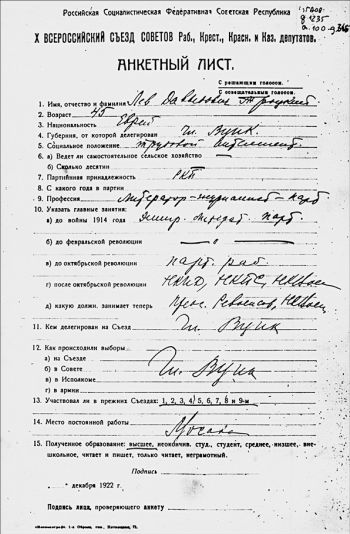 Российская Социалистическая Федеративная Советская Республика
X ВСЕРОССИЙСКИЙ СЪЕЗД СОВЕТОВ Раб., Крест., Красн. и Каз. депутатов.
АНКЕТНЫЙ ЛИСТ.
С решающим голосом.
С совещательным голосом.
1. Имя, отчество и фамилия Лев Давидович Троцкий
2. Возраст 45
3. Национальность Еврей
4. Губерния, от которой делегирован Чл. ВЦИК.
5. Социальное положение трудовой интеллигент.
6. а) Ведет ли самостоятельное сельское хозяйство —
б) Сколько десятин
7. Партийная принадлежность РКП
8. С какого года в партии
9. Профессия Литератор-журналист-
10. Указать главные занятия:
а) до войны 1914 года парт.
б) до февральской революции — о —
в) до октябрьской революции парт. раб.
г) после октябрьской революции НКИД, НКПС, НКВоен
д) какую должн. занимает теперь Пред. Реввоенсов,
11. Кем делегирован на Съезд Чл. ВЦИК
12. Как происходили выборы
а) на Съезде
б) в Совете Чл. ВЦИК
в) в Исполкоме
г) в армии
13. Участвовал ли в прежних Съездах: 1, 2, 3, 4, 5, 6, 7, 8 и 9-м
14. Место постоянной работы Москва
15. Полученное образование: высшее, неокончив. студ., студент, среднее, низшее, вне-
школьное, читает и пишет, только читает, неграмотный.
Подпись
декабря 1922 г.
Подпись лица, проверяющего анкету